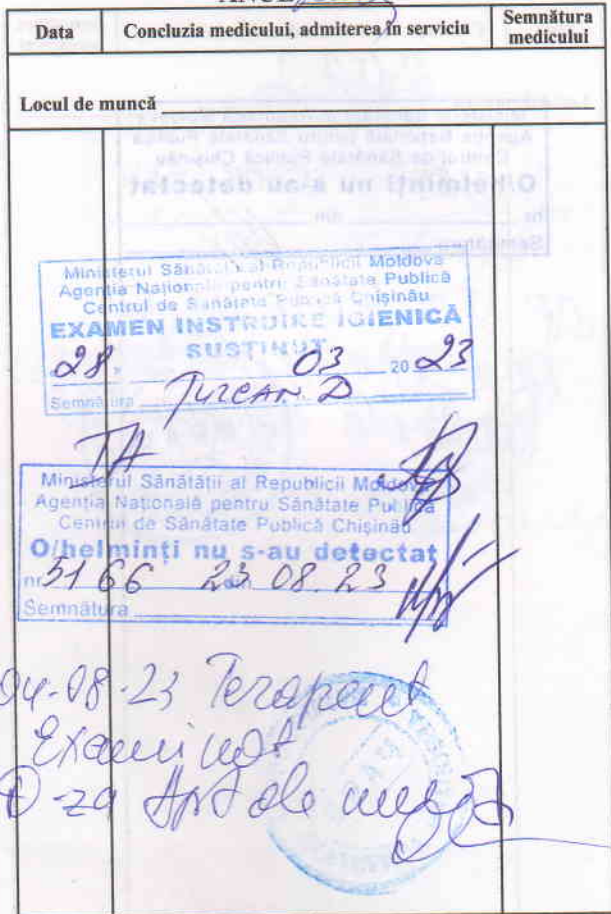 ANUL
Data Concluzia medicului, admiterea în serviciu Semnătura medicului
Locul de muncă
Ministerul Sănătății al Republicii Moldova
Agenția Națională pentru Sănătate Publică
Centrul de Sănătate Publică Chișinău
EXAMEN INSTRUIRE IGIENICĂ
SUSȚINUT
28 " 03 20 23
Semnătura Țurcan D
Ministerul Sănătății al Republicii Moldova
Agenția Națională pentru Sănătate Publică
Centrul de Sănătate Publică Chișinău
O/helminți nu s-au detectat
nr. 5166 din 23.08.23
Semnătura
04-08-23 Terapeut
Examinat
D-za Apt de